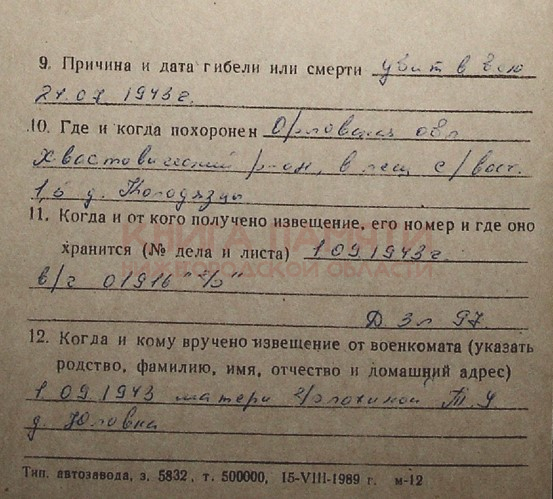 9. Причина и дата гибели или смерти убит в бою
10. Где и когда похоронен Орловская обл
Хвастовический р-он, в лесу с/вост.
1,5 д. Колодязцы
11. Когда и от кого получено извещение, его номер и где оно
КНИГА ПАМЯТИ
хранится (№ дела и листа) 1 09 1943 г.
ОБЛАСТИ
в/ч 01916
Д 3 л 97
12. Когда и кому вручено извещение от военкомата (указать
родство, фамилию, имя, отчество и домашний адрес)
1 09.1943 матери
д. Юловка
Тип. автозавода, з. 5832, т. 500000, 15-VIII-1989 г. м-12